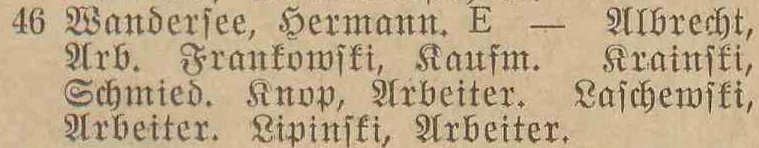 46 Wandersee, Hermann. E — Albrecht,
Arb. Frankowski, Kaufm. Krainski,
Schmied. Knop, Arbeiter. Laschewski,
Arbeiter. Lipinski, Arbeiter.